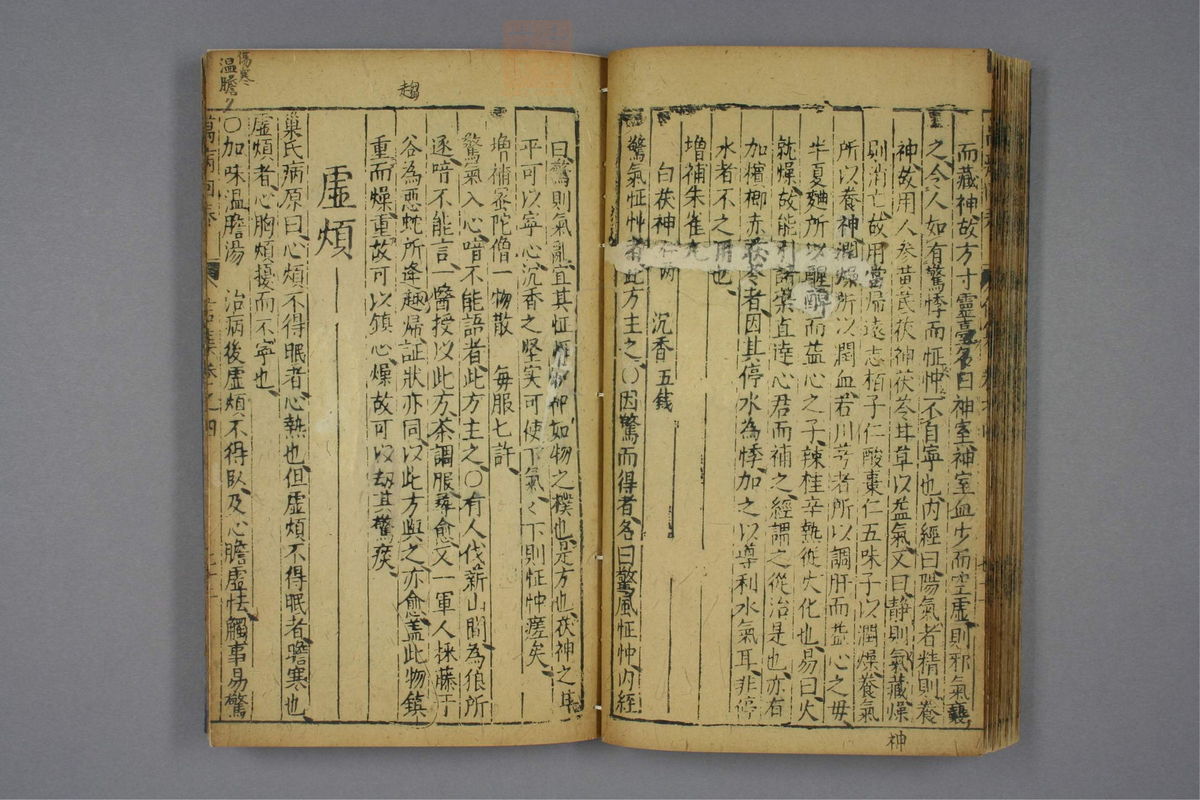 而藏神故方寸靈臺名曰神室神室血少而空虛則邪氣襲
之令人如有驚悸而怔忡不自寧也內經曰陽氣者精則養
神故用人參黃芪茯神茯苓甘草以益氣又曰靜則氣藏燥
則消亡故用當帰遠志栢子仁酸棗仁五味子以潤燥養氣
所以養神潤燥所以潤血若川芎者所以調肝而益心之毋
半夏麯所以醒脾而益心之子辣桂辛熱從火化也易曰火
就燥故能引諸藥直達心君而補之經謂之從治是也亦有
加檳榔赤茯苓者因其停水為悸加之以導利水氣耳非停
水者不之用也
增補朱雀丸
白茯神 沉香五錢
驚氣怔忡者此方主之○因驚而得者名曰驚風怔忡內經
曰驚則氣亂宜其怔忡如物之撲也是方也茯神之
平可以寧心沉香之堅实可使下氣々下則怔忡瘥矣
增補密陀僧一物散 每服七許
驚氣入心喑不能語者此方主之○有人伐薪山間為狼所
逐喑不能言一醫授以此方茶調服尋愈又一軍人採藤于
谷為惡蛇所逢趨帰証狀亦同以此方與之亦愈盖此物鎮
重而燥重故可以鎮心燥故可以劫其驚痰
虛煩
巢氏病原曰心煩不得眠者心熱也但虛煩不得眠者膽寒也
虛煩者心胸煩擾而不寧也
○加味溫膽湯 治病後虛煩不得臥及心膽虛怯觸事易驚
神
趨
傷寒
温膽